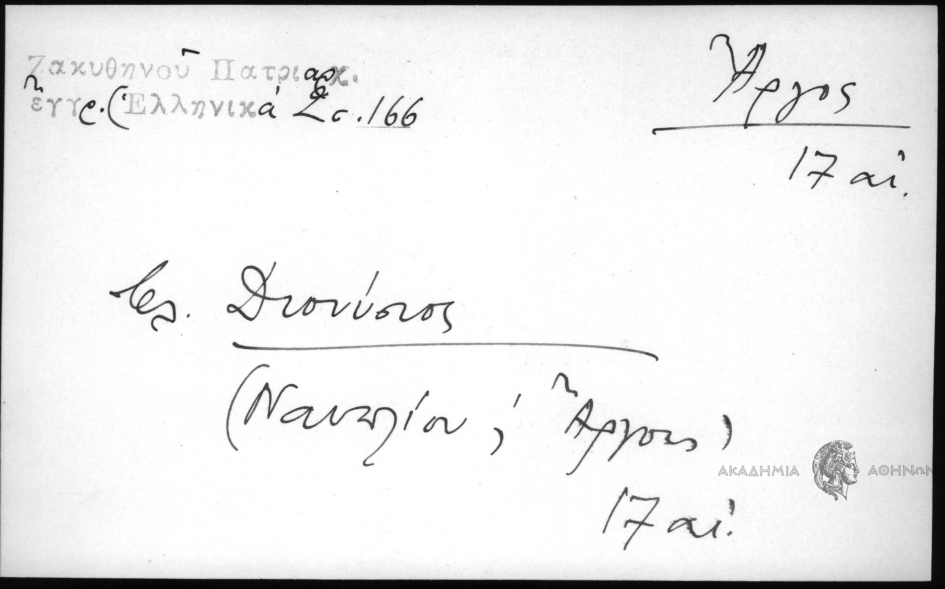 Ζακυθηνοῦ Πατριαρχ.
ἔγγρ. (Ἑλληνικά σ. 166
Ἄργος
17 αἰ.
βλ. Διονύσιος
(Ναυπλίου ; Ἄργους)
17 αἰ.
ΑΚΑΔΗΜΙΑ ΑΘΗΝΩΝ